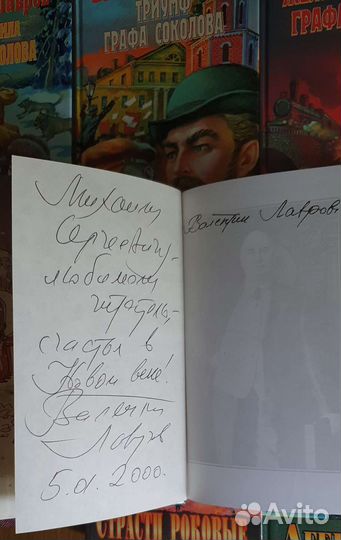 ТРИУМФ
ГРАФА СОКОЛОВА
СОКОЛОВА
ГРАФА
Михаилу
Сергеевичу -
любимому
читателю,
счастья в
Новом веке!
Валентин
Лавров
5.01.2000.
Валентин Лавров
СТРАСТИ РОКОВЫЕ
Avito